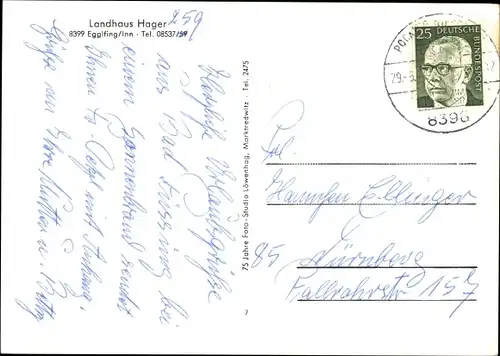 Landhaus Hager
8399 Egglfing/Inn - Tel. 08537/59
259
Herzliche Urlaubsgrüße
aus Bad Füssing bei
einem Sonnenbrand sendet
Ihnen Fa.
Grüße an Ihre Mutter u.
75 Jahre Foto-Studio Löwenhag, Marktredwitz · Tel. 2475
25
DEUTSCHE
BUNDESPOST
POCKING
29.
8398
Frl.
Hannchen Ellinger
85 Nürnberg
Fallrohrstr. 157